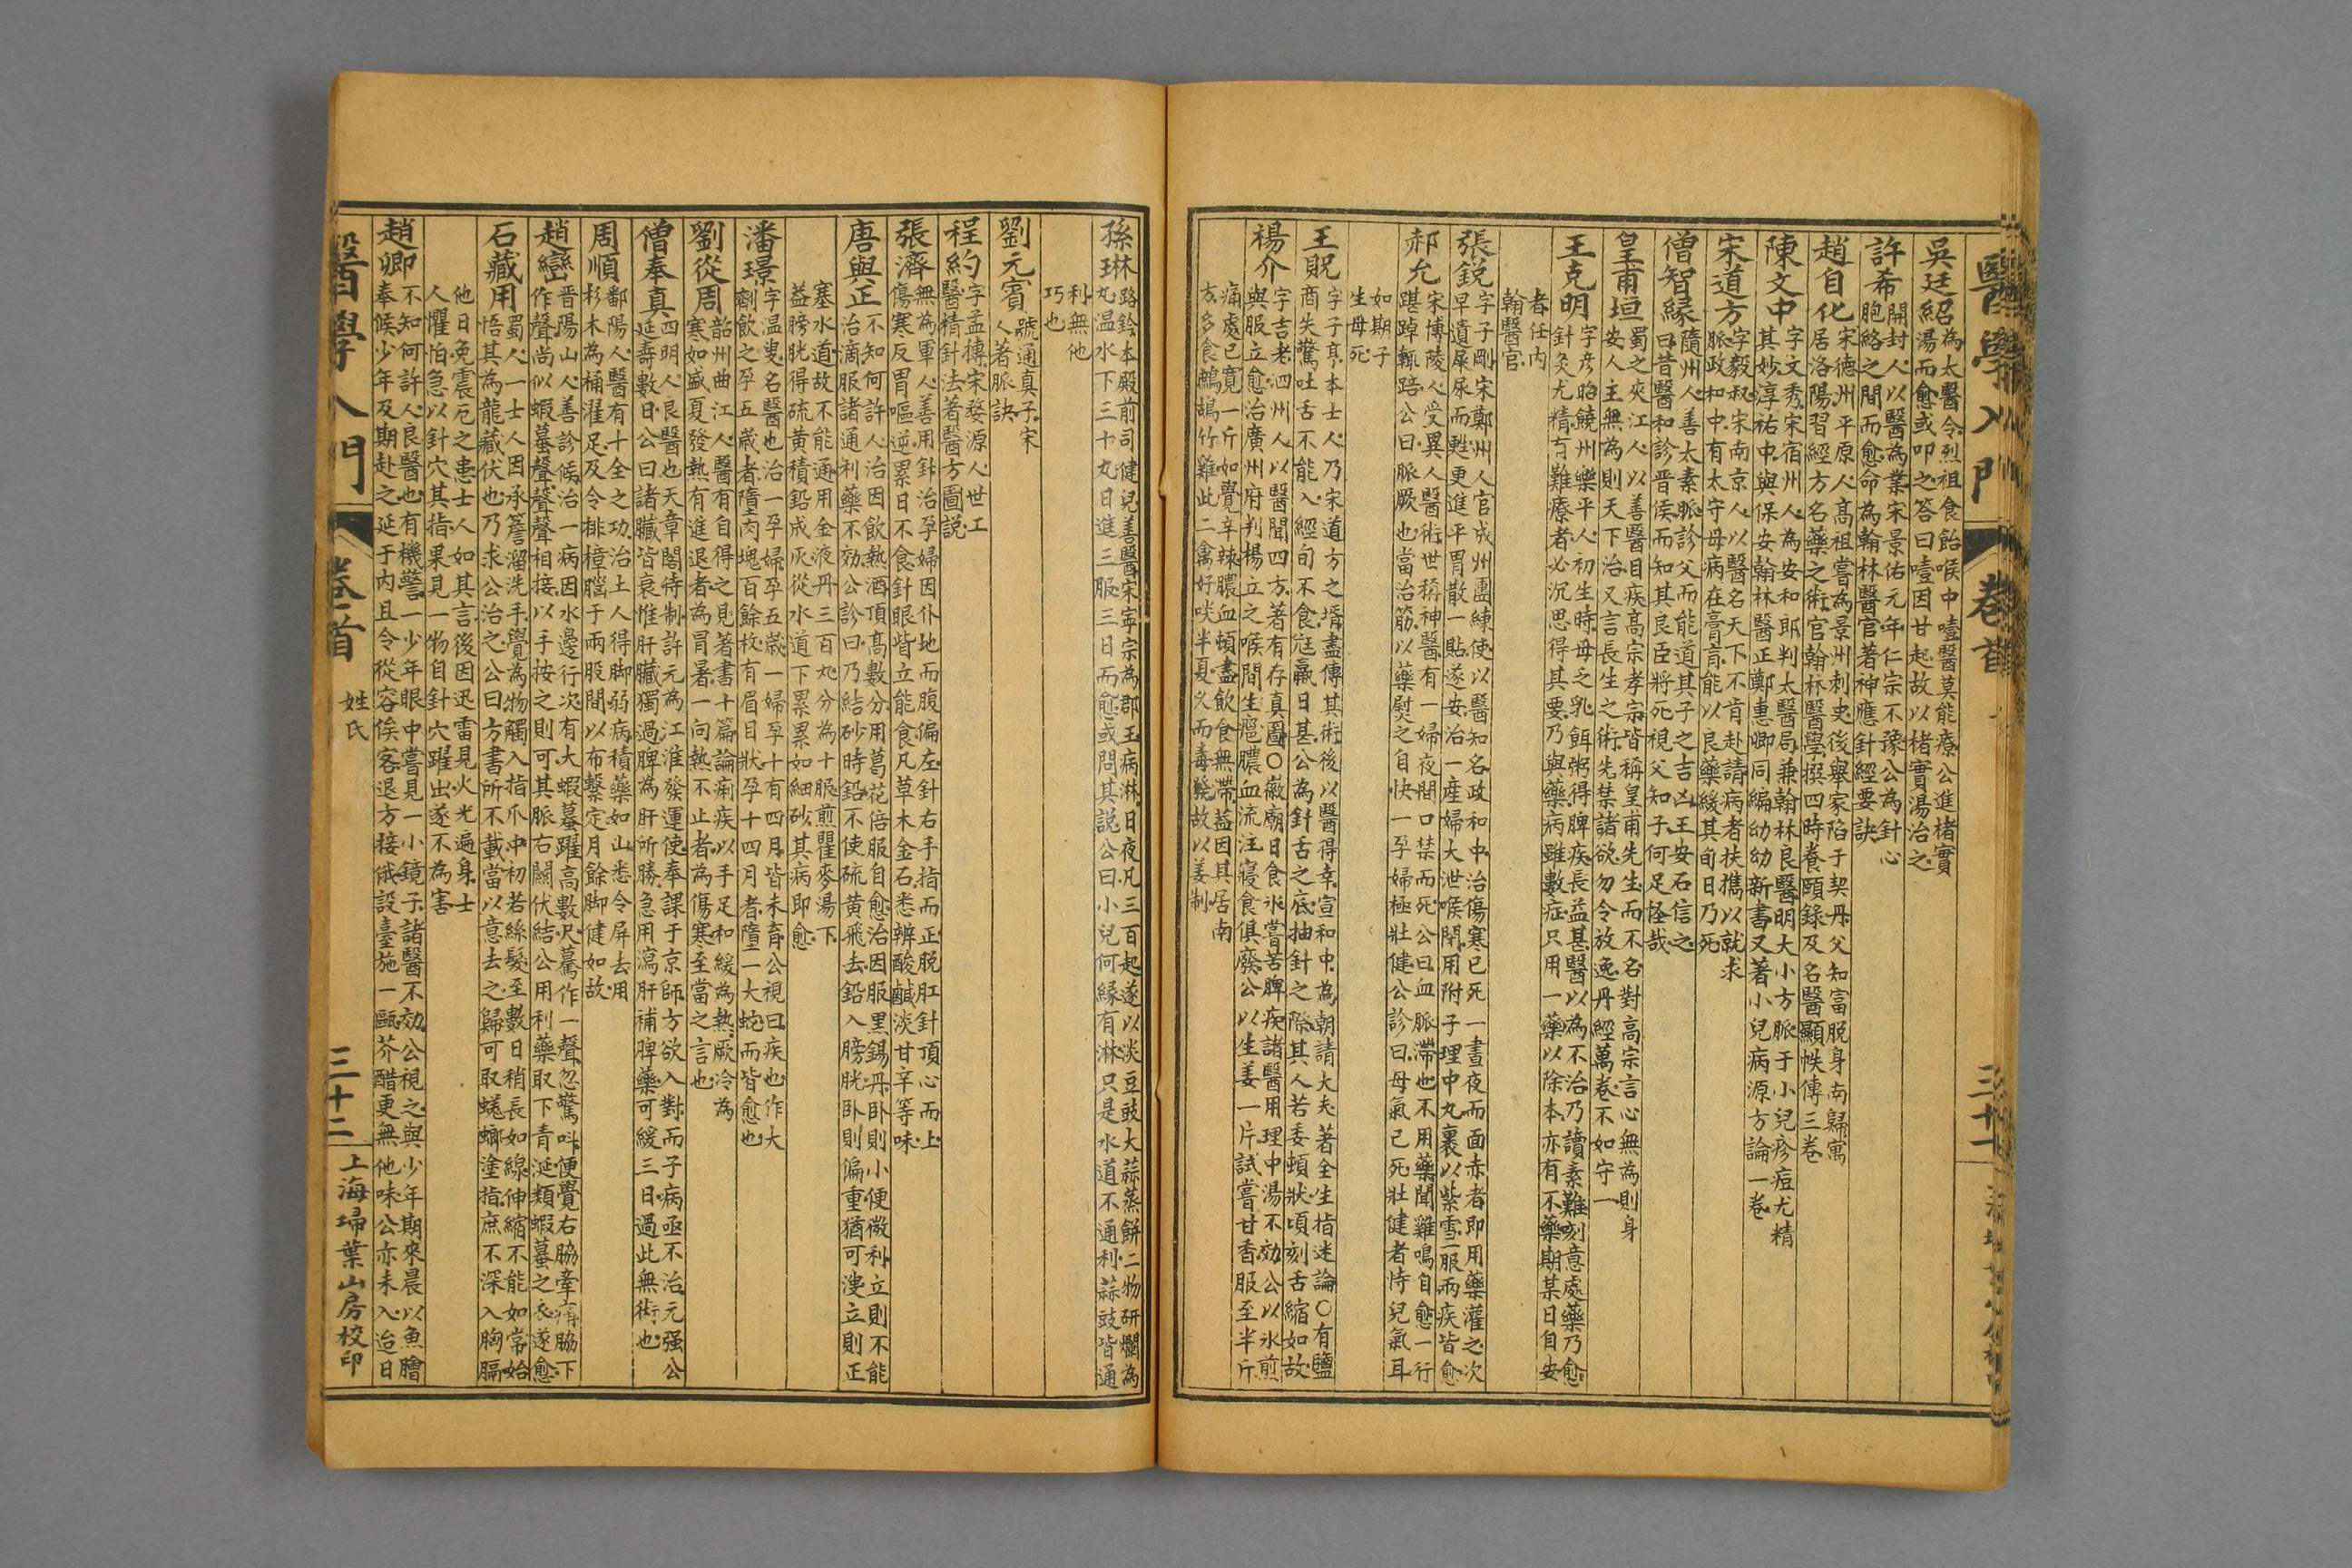 醫學入門 卷首
吳廷紹 為太醫令烈祖食飴喉中噎醫莫能療公進楮實
湯而愈或叩之答曰噎因甘起故以楮實湯治之
許希 開封人以醫為業宋景佑元年仁宗不豫公為針心
胞絡之間而愈命為翰林醫官著神應針經要訣
趙自化 宋德州平原人高祖嘗為景州刺史後舉家陷于契丹父知富脫身南歸寓
居洛陽習經方名藥之術官翰林醫學撰四時養頤錄及名醫顯帙傳三卷
陳文中 字文秀宋宿州人為安和郎判太醫局兼翰林良醫明大小方脈于小兒疹痘尤精
其妙淳祐中與保安翰林醫正鄭惠卿同編幼幼新書又著小兒病源方論一卷
宋道方 字毅叔宋南京人以醫名天下不肯赴請病者扶攜以就求
脈政和中有太守母病在膏肓能以良藥緩其旬日乃死
僧智緣 隨州人善太素脈診父而能道其子之吉凶王安石信之
曰昔醫和診晉侯而知其良臣將死視父知子何足怪哉
皇甫垣 蜀之夾江人以善醫目疾高宗孝宗皆稱皇甫先生而不名對高宗言心無為則身
安人主無為則天下治又言長生之術先禁諸欲勿令放逸丹經萬卷不如守一
王克明 字彥昭饒州樂平人初生時母之乳餌粥得脾疾長益甚醫以為不治乃讀素難刻意處藥乃愈
針灸尤精有難療者必沉思得其要乃與藥病雖數症只用一藥以除本亦有不藥期某日自安
者任內
翰醫官
張銳 字子剛宋鄭州人官成州團練使以醫知名政和中治傷寒已死一晝夜而面赤者即用藥灌之次
早遺屎尿而甦更進平胃散一貼遂安治一產婦大泄喉閉用附子理中丸裹以紫雪一服兩疾皆愈
郝允 宋博陵人受異人醫術世稱神醫有一婦夜間口禁而死公曰血脈滯也不用藥聞雞鳴自愈一行
踸踔輒踣公曰脈厥也當治筋以藥熨之自快一孕婦極壯健公診曰母氣已死壯健者恃兒氣耳
如期子
生母死
王貺 字子亨本士人乃宋道方之壻盡傳其術後以醫得幸宣和中為朝請大夫著全生指迷論○有鹽
商失驚吐舌不能入經旬不食尫羸日甚公為針舌之底抽針之際其人若委頓狀頃刻舌縮如故
楊介 字吉老泗州人以醫聞四方著有存真圖○徽廟日食冰嘗苦脾疾諸醫用理中湯不効公以冰煎
與服立愈治廣州府判楊立之喉間生癰膿血流注寢食俱廢公以生姜一片試嘗甘香服至半斤
痛處已寬一斤如覺辛辣膿血頓盡飲食無滯蓋因其居南
方多食鷓鴣竹雞此二禽好啖半夏久而毒發故以姜制
孫琳 路鈐本殿前司健兒善醫宋寧宗為郡王病淋日夜凡三百起遂以淡豆豉大蒜蒸餅二物研爛為
丸温水下三十丸日進三服三日而愈或問其說公曰小兒何緣有淋只是水道不通利蒜豉皆通
利無他
巧也
劉元賓 號通真子宋
人著脈訣
程約 字孟摶宋婺源人世工
醫精針法著醫方圖說
張濟 無為軍人善用針治孕婦因仆地而腹偏左針右手指而正脫肛針頂心而上
傷寒反胃嘔逆累日不食針眼眥立能食凡草木金石悉辨酸鹹淡甘辛等味
唐與正 不知何許人治因飲熱酒頂高數分用葛花倍服自愈治因服黑錫丹臥則小便微利立則不能
治滴服諸通利藥不効公診曰乃結砂時鉛不使硫黃飛去鉛入膀胱臥則偏重猶可溲立則正
塞水道故不能通用金液丹三百丸分為十服煎瞿麥湯下
益膀胱得硫黃積鉛成灰從水道下累累如細砂其病即愈
潘璟 字温叟名醫也治一孕婦孕五歲一婦孕十有四月皆未育公視曰疾也作大
劑飲之孕五歲者墮肉塊百餘枚有眉目狀孕十四月者墮一大蛇而皆愈也
劉從周 韶州曲江人醫有自得之見著書十篇論痢疾以手足和緩為熱厥冷為
寒如盛夏發熱有進退者為冒暑一向熱不止者為傷寒至當之言也
僧奉真 四明人良醫也天章閣待制許元為江淮發運使奉課于京師方欲入對而子病亟不治元强公
延壽數日公曰諸臟皆衰惟肝臟獨過脾為肝所勝急用瀉肝補脾藥可緩三日過此無術也
周順 鄱陽人醫有十全之功治土人得脚弱病積藥如山悉令屏去用
杉木為桶濯足及令排樟腦于兩股間以布繫定月餘脚健如故
趙巒 晉陽山人善診候治一病因水邊行次有大蝦蟇躍高數尺蓦作一聲忽驚叫便覺右脇牽痛脇下
作聲尚似蝦蟇聲聲聲相接以手按之則可其脈右關伏結公用利藥取下青涎類蝦蟇之衣遂愈
石藏用 蜀人一士人因承簷溜洗手覺為物觸入指爪中初若絲髮至數日稍長如線伸縮不能如常始
悟其為龍藏伏也乃求公治之公曰方書所不載當以意去之歸可取蜣螂塗指庶不深入胸膈
他日免震厄之患士人如其言後因迅雷見火光遍身士
人懼怕急以針穴其指果見一物自針穴躍出遂不為害
趙卿 不知何許人良醫也有機警一少年眼中嘗見一小鏡子諸醫不効公視之與少年期來晨以魚膾
奉候少年及期赴之延于內且令從容俟客退方接俄設臺施一甌芥醋更無他味公亦未入迨日
醫學入門 卷首 姓氏 三十二 上海埽葉山房校印